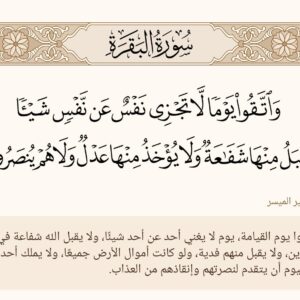 سُورَةُ البَقَرَةِ
وَٱتَّقُوا۟ يَوْمًا لَّا تَجْزِى نَفْسٌ عَن نَّفْسٍ شَيْـًٔا
بَلُ مِنْهَا شَفَـٰعَةٌ وَلَا يُؤْخَذُ مِنْهَا عَدْلٌ وَلَا هُمْ يُنصَرُو
ير الميسر
وا يوم القيامة، يوم لا يغني أحد عن أحد شيئًا، ولا يقبل الله شفاعة في
رين، ولا يقبل منهم فدية، ولو كانت أموال الأرض جميعًا، ولا يملك أحد
يوم أن يتقدم لنصرتهم وإنقاذهم من العذاب.